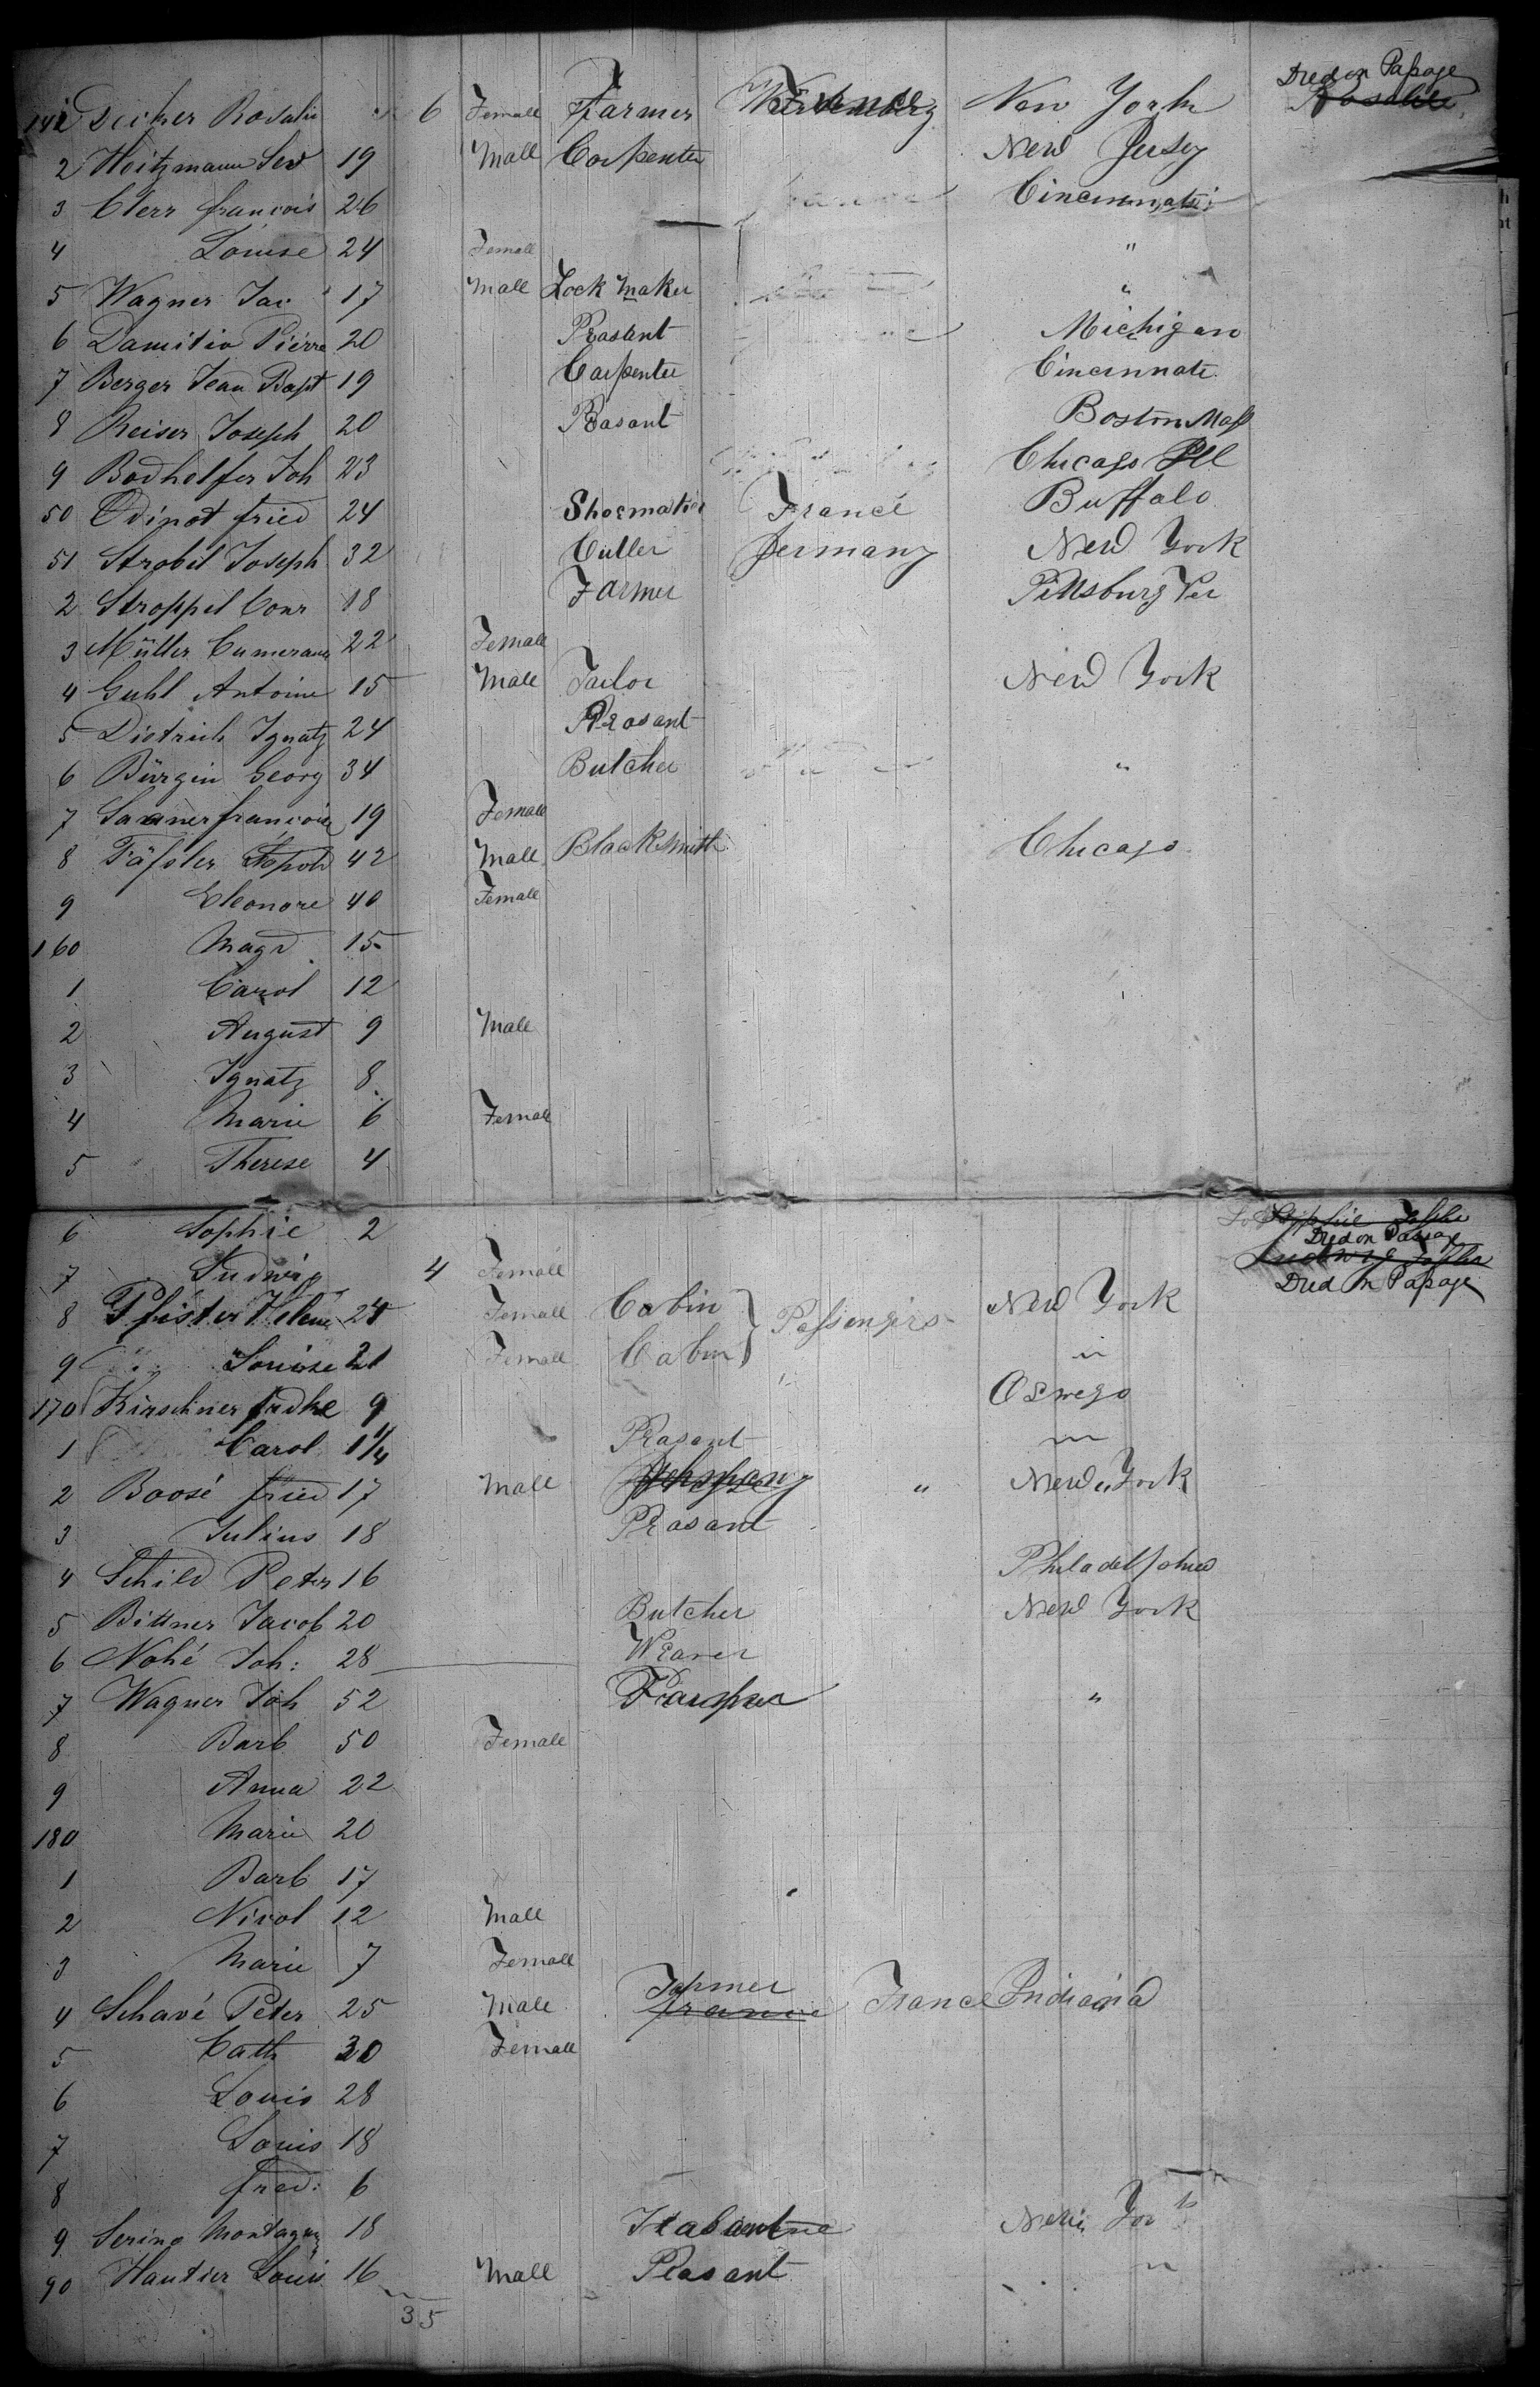 Died on Passage
141 Decker Rosalie 6 Female Farmer France New York Rosalie
2 Heitzmann Sev 19 Male Carpenter New Jersey
3 Clerr françois 26 Cincinnati
4 Louise 24 Female "
5 Wagner Jac 17 Male Lock Maker "
6 Damitio Piérre 20 Peasant Michigan
7 Berger Jean Bapt 19 Carpenter Cincinnati
8 Reiser Joseph 20 Peasant Boston Mass
9 Bodholfer Joh 23 Chicago Ill
50 Odinot fried 24 Shoemaker France Buffalo
51 Strobel Joseph 32 Cutler Germany New York
2 Stroppel Conr 18 Farmer Pittsburg Per
3 Müller 22 Female
4 Guhl Antoine 15 Male Tailor New York
5 Dietrich Ignatz 24 Peasant
6 Bürgin Georg 34 Butcher "
7 françoise 19 Female
8 Fäßler 42 Male Blacksmith Chicago
9 Eleonore 40 Female
160 Magd. 15
1 Carol 12
2 August 9 Male
3 Ignatz 8
4 Marie 6 Female
5 Therese 4
6 Sophie 2 Sophie
Died on Passage
7 Ludwig 4 Female Ludwig
Died on Passage
8 Pfister Helene 24 Female Cabin } Passengers New York
9 Louise 21 Female Cabin "
170 Kirschner fridke 9 Oswego
1 Carol 1 1/4 Peasant "
2 Boosé fried 17 Male Germany " New York
3 Julius 18 Peasant
4 Schild Peter 16 Philadelphia
5 Bittner Jacob 20 Butcher New York
6 Nohé Joh: 28 Weaver
7 Wagner Joh 52 "
8 Barb 50 Female
9 Anna 22
180 Marie 20
1 Barb 17
2 Nicol 12 Male
3 Marie 7 Female
4 Schavé Peter 25 Male Farmer France France Indiana
5 Cath 30 Female
6 Louis 28
7 Louis 18
8 fred: 6
9 Serino Montagne 18 New York
90 Hautier Louis 16 Male Peasant "
35